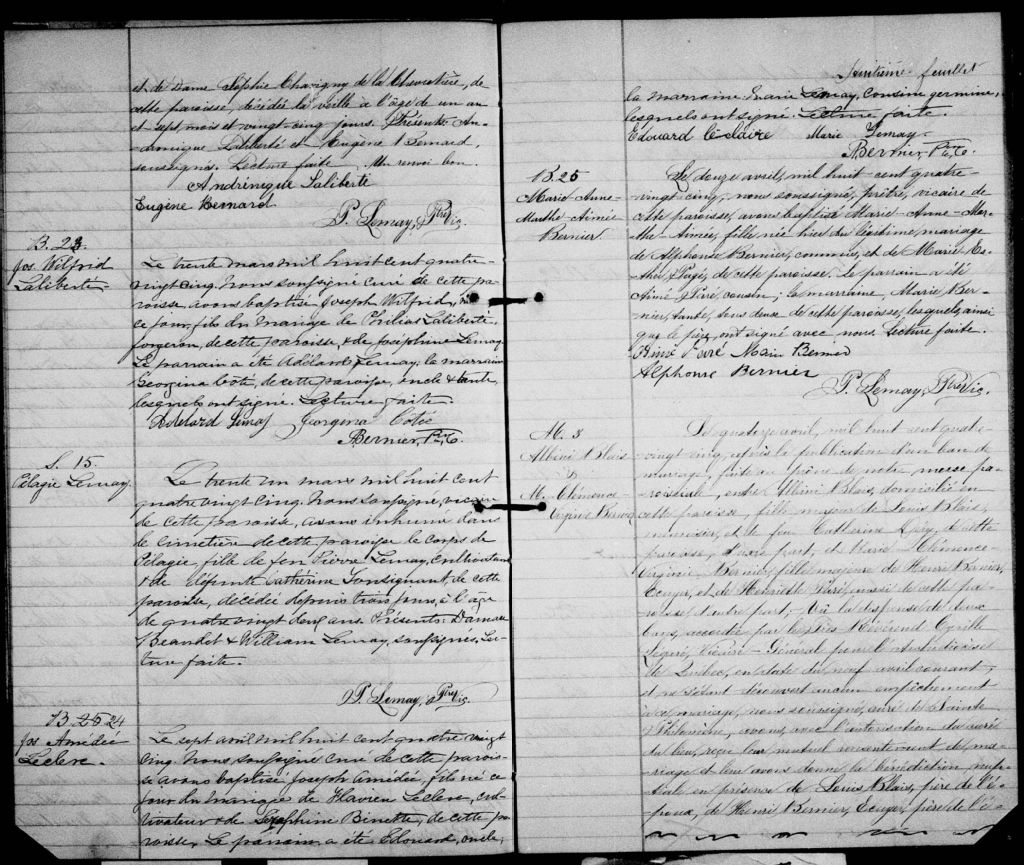 et de Dame Sophie Chavigny de la Chevrotière, de
cette paroisse, décédé la veille à l'âge de un an
et sept mois et vingt-cinq jours. Présents An-
dronique Laliberté et Eugène Bernard,
soussignés. Lecture faite. Un renvoi bon.
Andrinique Laliberté
Eugène Bernard
P. Lemay, Ptre Vic.
B. 23.
Jos. Wilfrid
Laliberté
Le trente mars mil huit cent quatre-
vingt cinq. Nous soussigné curé de cette pa-
roisse avons baptisé Joseph Wilfrid, né
ce jour, fils du mariage de Philias Laliberté,
forgeron, de cette paroisse & de Joséphine Lemay.
Le parrain a été Adélard Lemay, la marraine
Georgina Côté, de cette paroisse, oncle & tante
lesquels ont signé. Lecture faite.
Adélard Lemay Georgina Côté
Bernier, Ptre C.
S. 15.
Pélagie Lemay.
Le trente un mars mil huit cent
quatre vingt cinq. Nous soussigné, vicaire
de cette paroisse, avons inhumé dans
le cimetière de cette paroisse le corps de
Pélagie, fille de feu Pierre Lemay, cultivateur
& de défunte Catherine de cette
paroisse, décédée depuis trois jours, à l'âge
de quatre vingt deux ans. Présents: Damase
Beaudet & William Lemay, soussignés, Lec-
ture faite.
P. Lemay, Ptre Vic.
B. 25 24
Jos Amédée
Leclerc.
Le sept avril mil huit cent quatre vingt
cinq. Nous soussigné curé de cette parois-
se avons baptisé Joseph Amédée, fils né ce
jour du mariage de Flavien Leclerc, cul-
tivateur & de Séraphine Binette, de cette pa-
roisse. Le parrain a été Edouard, oncle,
Huitième feuillet
la marraine Marie Lemay, cousine germaine,
lesquels ont signé. Lecture faite.
Edouard Leclaire Marie Lemay.
Bernier, Ptre C.
B. 25
Marie-Anne-
Marthe-Aimée
Bernier.
Le douze avril, mil huit cent quatre-
vingt cinq, nous soussigné, prêtre, vicaire de
cette paroisse, avons baptisé Marie-Anne-Mar-
the-Aimée, fille née hier du légitime mariage
de Alphonse Bernier, commis, et de Marie-Es-
ther Pagé, de cette paroisse. Le parrain a été
Aimé Paré, cousin; la marraine, Marie Ber-
nier, tante, tous deux de cette paroisse, lesquels, ainsi
que le père, ont signé avec nous. Lecture faite.
Aimé Paré Marie Bernier
Alphonse Bernier
P. Lemay, Ptre Vic.
M. 3
Albini Blais
&
M. Clémence-
Virginie Bernier
Le quatorze avril, mil huit cent quatre-
vingt cinq, après la publication d'un ban de
mariage, faite au prône de notre messe pa-
roissiale, entre Albini Blais, domicilié en
cette paroisse, fils majeur de Louis Blais,
menuisier, et de feu Catherine de cette
paroisse, d'une part; et Marie Clémence-
Virginie Bernier, fille majeure de Henri Bernier,
Ecuyer, et de Henriette Paré, aussi de cette pa-
roisse d'autre part; Vu la dispense de deux
bans, accordée par le Très Révérend Cyrille
Légaré, Vicaire-Général pour l'archidiocèse
de Québec, en date du neuf avril courant;
et ne s'étant découvert aucun empêchement
à ce mariage, nous soussigné, curé de Sainte
Philomène, avons, avec l'autorisation du curé
du lieu, reçu leur mutuel consentement de ma-
riage et leur avons donné la bénédiction nup-
tiale en présence de Louis Blais, père de l'é-
poux, de Henri Bernier, Ecuyer, père de l'é-